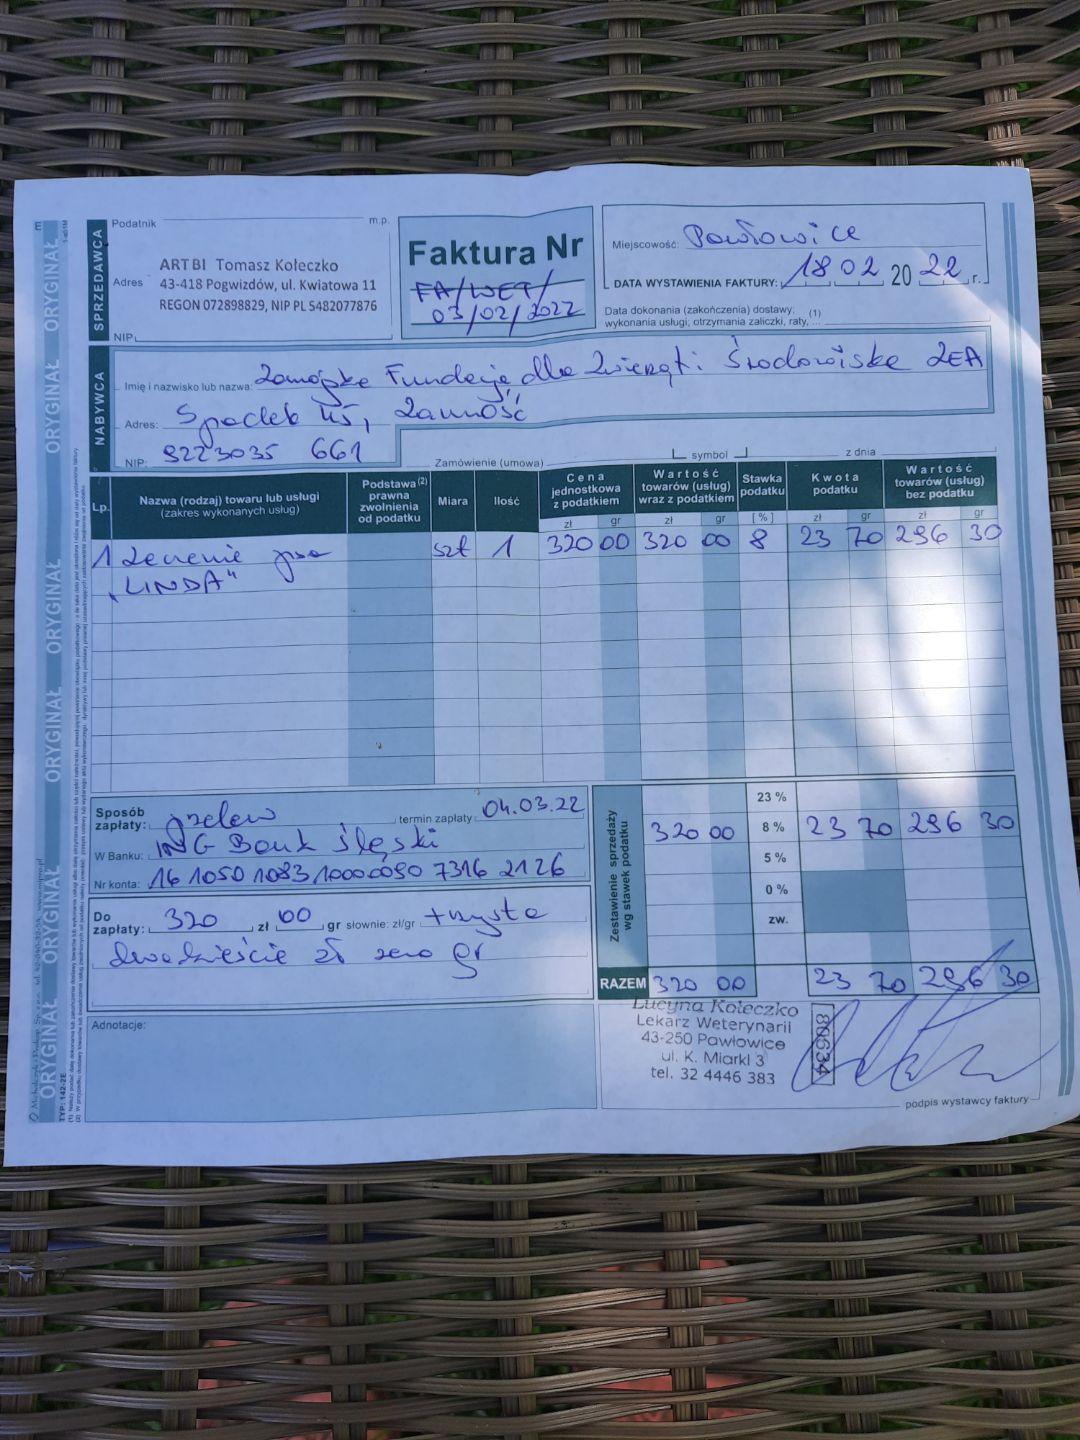 ORYGINAŁ ORYGINAŁ ORYGINAŁ ORYGINAŁ ORYGINAŁ ORYGINAŁ ORYGINAŁ
TYP: 142-2E
SPRZEDAWCA
Podatnik m.p.
ART BI Tomasz Kołeczko
Adres 43-418 Pogwizdów, ul. Kwiatowa 11
REGON 072898829, NIP PL 5482077876
NIP
Faktura Nr
FA/WET/
03/02/2022
Miejscowość: Pawłowice
DATA WYSTAWIENIA FAKTURY: 18 02 2022 r.
Data dokonania (zakończenia) dostawy; (1)
wykonania usługi; otrzymania zaliczki, raty, ...
NABYWCA
Imię i nazwisko lub nazwa: Zamojska Fundacja dla Zwierząt i Środowiska ZEA
Adres: Spadek 45, Zamość
NIP: 9223035 661
Zamówienie (umowa) symbol z dnia
Lp. Nazwa (rodzaj) towaru lub usługi (zakres wykonanych usług) Podstawa (2) prawna zwolnienia od podatku Miara Ilość Cena jednostkowa z podatkiem Wartość towarów (usług) wraz z podatkiem Stawka podatku Kwota podatku Wartość towarów (usług) bez podatku
zł gr zł gr [%] zł gr zł gr
1 Leczenie psa szt 1 320 00 320 00 8 23 70 296 30
„LINDA"
Sposób zapłaty: przelew termin zapłaty 04.03.22
W Banku: ING Bank Śląski
Nr konta: 16 1050 1083 1000 0090 7316 2126
Do zapłaty: 320 zł 00 gr słownie: zł/gr trzysta
dwadzieścia zł zero gr
Adnotacje:
Zestawienie sprzedaży
wg stawek podatku
23 %
320 00 8 % 23 70 296 30
5 %
0 %
zw.
RAZEM 320 00 23 70 296 30
Lucyna Kołeczko
Lekarz Weterynarii
43-250 Pawłowice
ul. K. Miarki 3
tel. 32 4446 383
80634
podpis wystawcy faktury